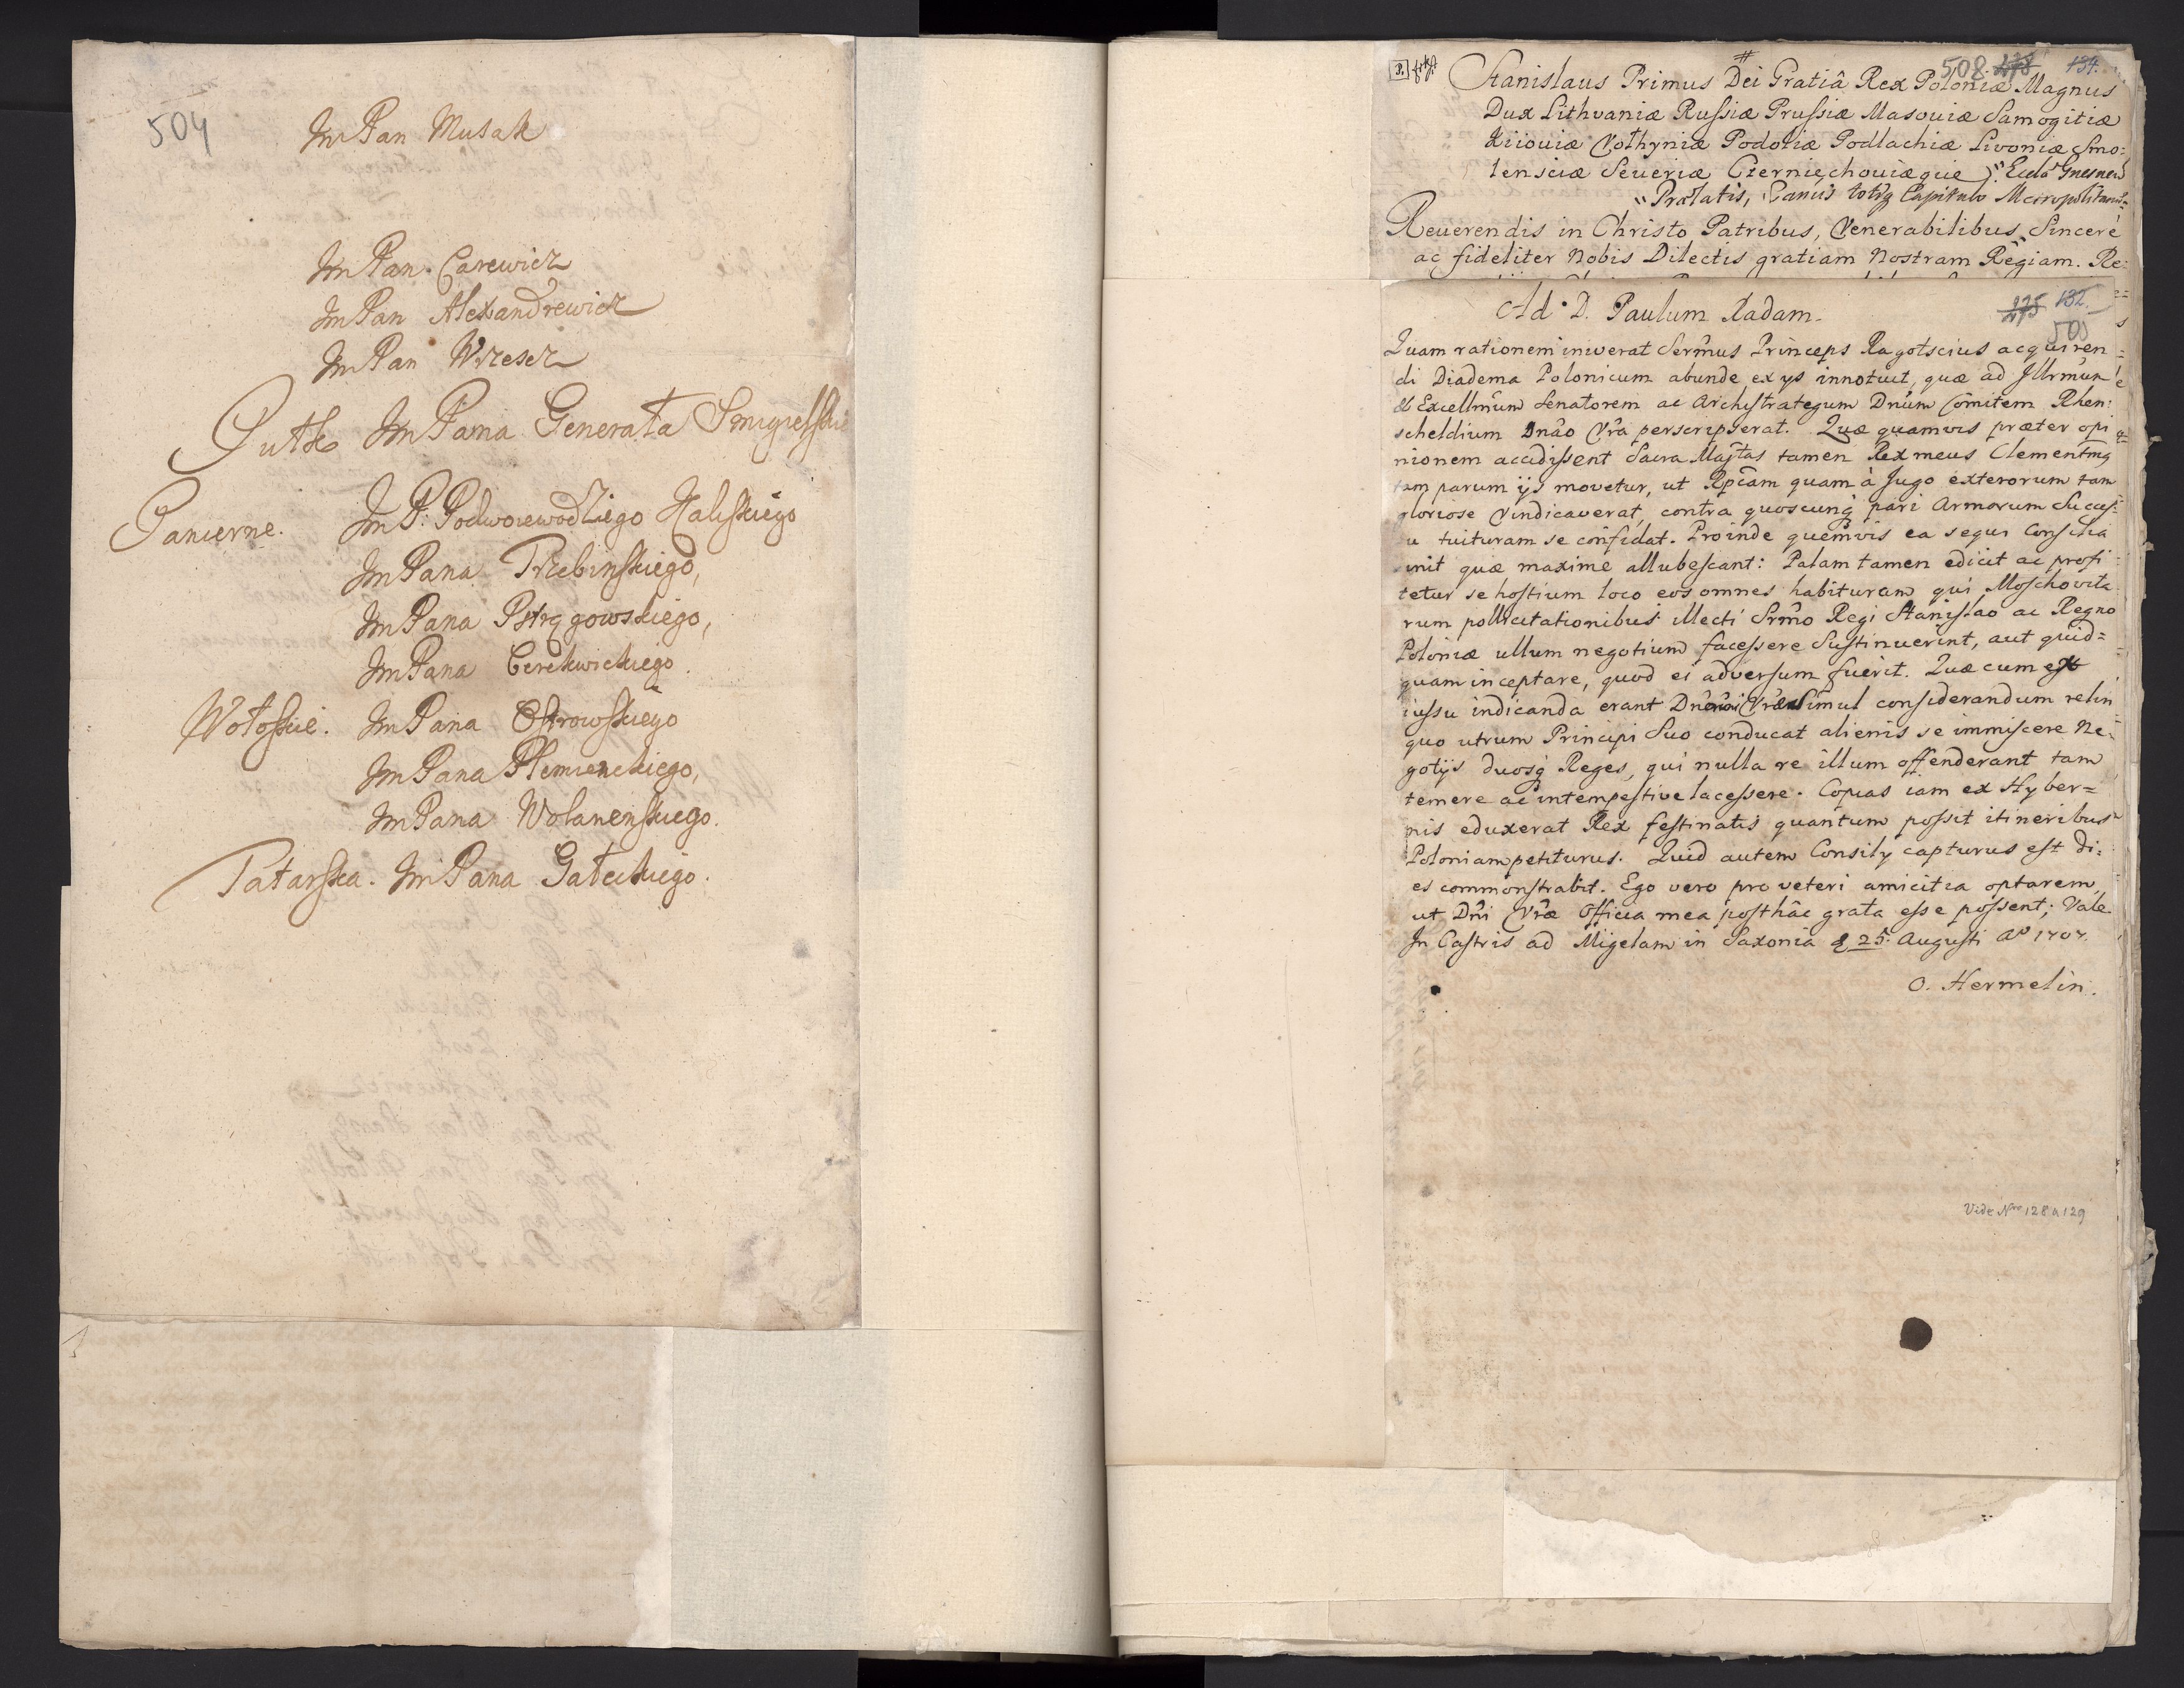 504
Jm Pan Musak
Jm Pan Carewicz
Jm Pan Alexandrewicz
Jm Pan Wrzesz
Putk Jm Pana Generała Smigielskie
Pancerne. Jm P. Podwoiewodziego Kaliskiego
Jm Pana Trzebinskiego,
Jm Pana Pstrągowskiego,
Jm Pana Cerekwickiego.
Wołoskie. Jm Pana Ostrowskiego
Jm Pana Plemieńckiego,
Jm Pana Wolanenskiego.
Tatarska. Jm Pana Gałeckiego.
508 278 134.
Stanislaus Primus Dei Gratiâ Rex Poloniæ Magnus
Dux Lithvaniæ Russiæ Prussiæ Masoviæ Samogitiæ
Kiioviæ Volhyniæ Podoliæ Podlachiæ Livoniæ Smo:
lensciæ Severiæ Czerniechoviæque Eccla Gnesnen
Prælatis, Canʼcis totiq Capitulo Metropolitano
Reuerendis in Christo Patribus, Venerabilibus, Sincerè
ac fideliter Nobis Dilectis gratiam Nostram Regiam. Re:
Ad D. Paulum Radam.
275 132.
505
Quam rationem iniverat Sermus Princeps Ragotscius acquiren=
di Diadema Polonicum abunde ex ys innotuit, quæ ad Illrmum
& Excellmum Senatorem ac Archistrategum Dnum Comitem Rhen:
scheldium Dnâo Vra perscripserat. Quæ quamvis præter opi
nionem accidissent Sacra Majtas tamen Rex meus Clementmq
tam parum ijs movetur, ut Rpcam quam à Jugo exterorum tam
gloriose vindicaverat, contra quoscunq pari Armorum Succes=
u tuituram se confidat. Proinde quemvis ea sequi Consilia
init quæ maxime allubescant: Palam tamen edicit ac profi
tetur se hostium loco eos omnes habituram qui Moschovita
rum pollicitationibus illecti Srmo Regi Stanislao ac Regno
Poloniæ ullum negotium facessere Sustinuerint, aut quid=
quam inceptare, quod ei adversum fuerit. Quæ cum ex
iussu indicanda erant Vræ Simul considerandum relin
quo utrum Principi Suo conducat alienis se immiscere Ne
gotijs duosq Reges, qui nulla re illum offenderant tam
temere ac intempestive lacessere. Copias iam ex Hyber=
nis eduxerat Rex festinatis quantum possit itineribus
Poloniam petiturus. Quid autem Consily capturus est di:
es commonstrabit. Ego vero pro veteri amicitia optarem,
ut Dni Vræ Officia mea posthâc grata esse possent; Vale.
In Castris ad Migelam in Saxonia d 25. Augusti Ao 1707.
O. Hermelin.
Vide Nre 128 a 129